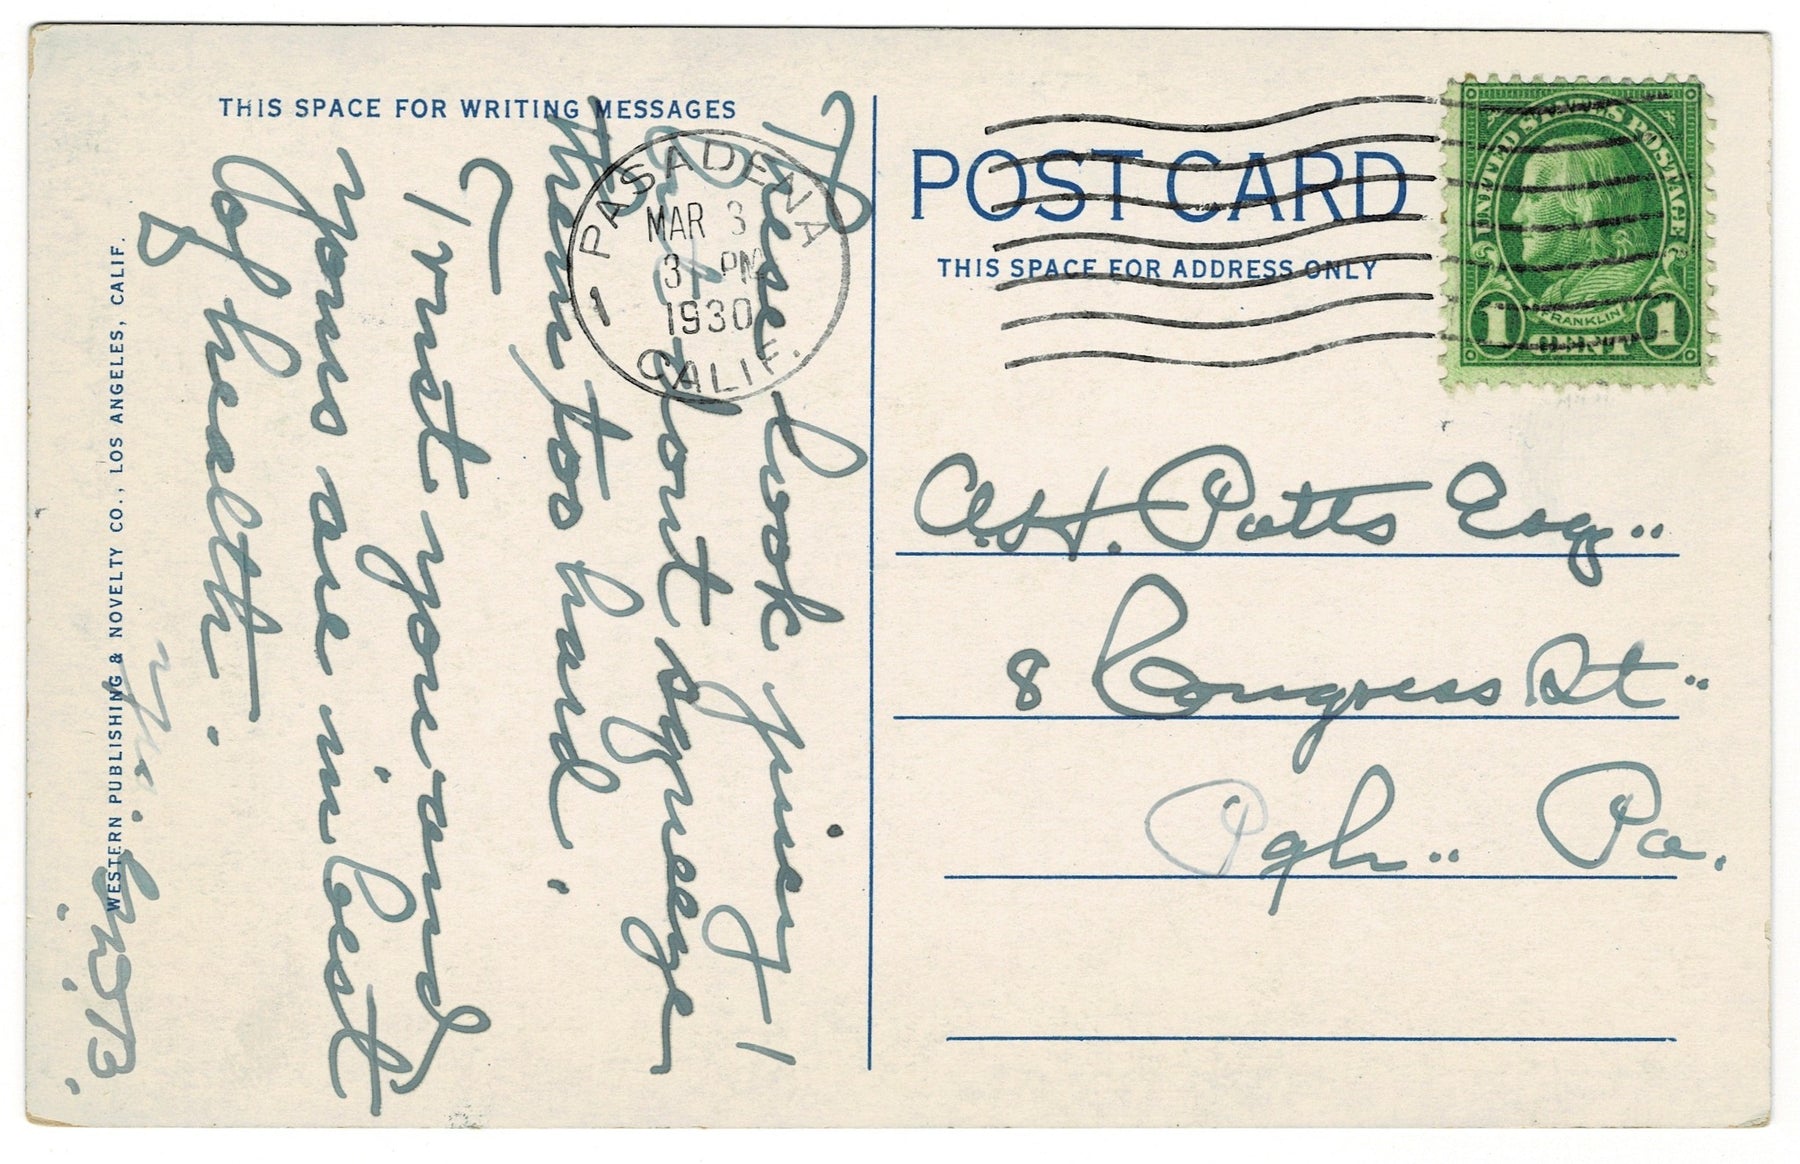 THIS SPACE FOR WRITING MESSAGES
These look juicy !
but dont squeeze
them too hard.
I trust you and
yours are in best
of health.
WESTERN PUBLISHING & NOVELTY CO., LOS ANGELES, CALIF.
PASADENA
MAR 3
3 PM
1930
CALIF.
1
POST CARD
THIS SPACE FOR ADDRESS ONLY
UNITED STATES POSTAGE
FRANKLIN
1 CENT 1
A.H. Potts Esq..
8 Congress St..
Pgh.. Pa.